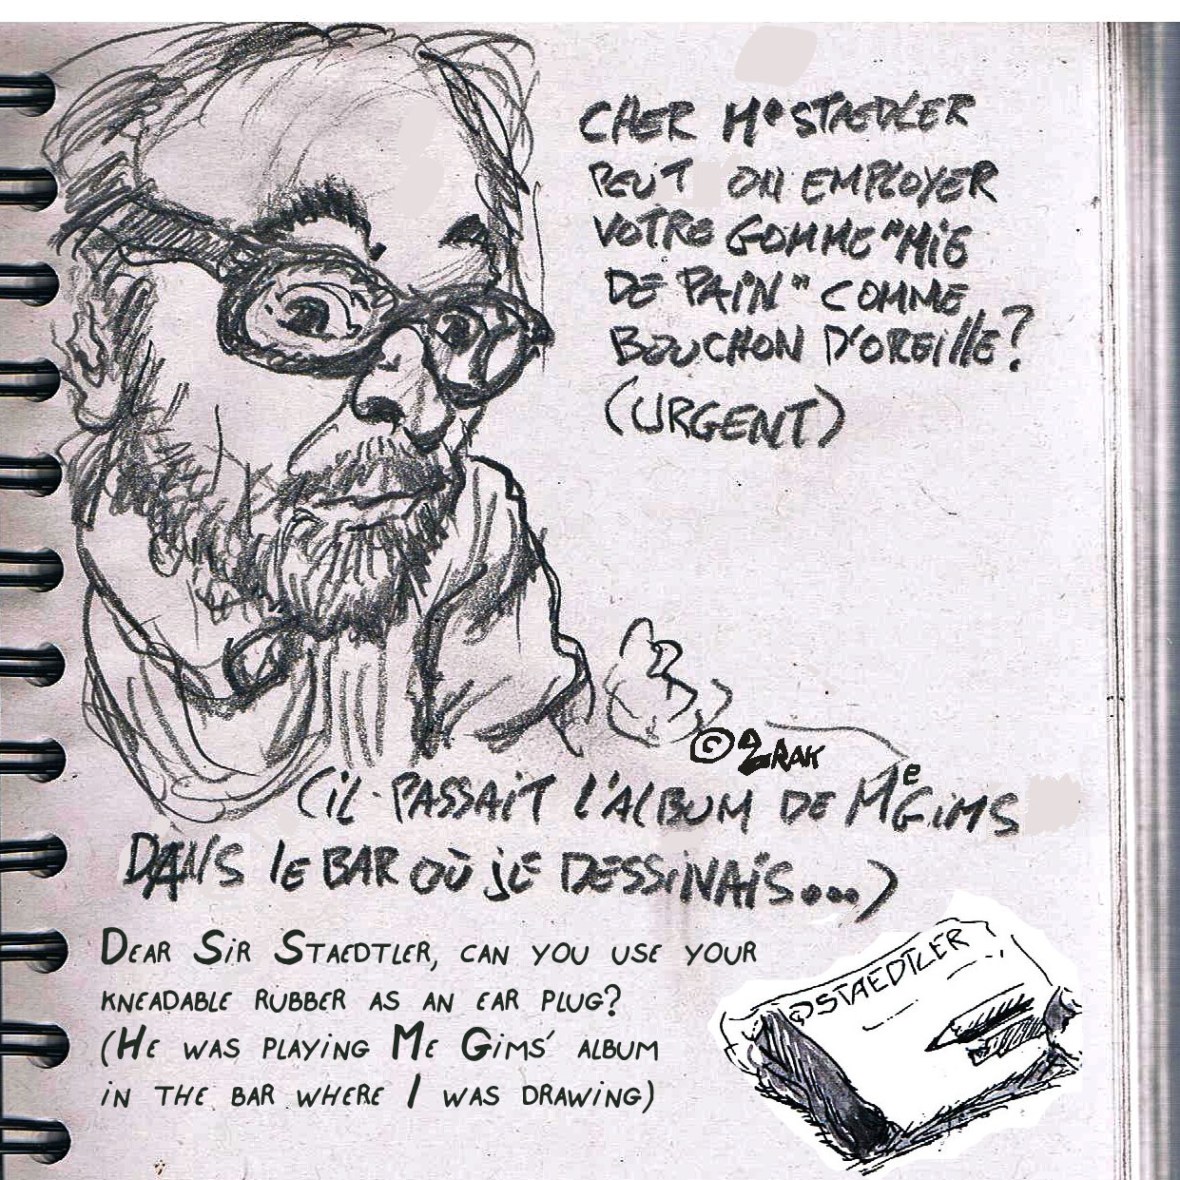 CHER Mr STAEDLER
PEUT ON EMPLOYER
VOTRE GOMME "MIE
DE PAIN" COMME
BOUCHON D'OREILLE?
(URGENT)
© 2RAK
(iL PASSAIT L'ALBUM DE Me GiMS
DANS LE BAR OÙ JE DESSINAIS...)
DEAR SIR STAEDTLER, CAN YOU USE YOUR
KNEADABLE RUBBER AS AN EAR PLUG?
(HE WAS PLAYING ME GIMS' ALBUM
IN THE BAR WHERE I WAS DRAWING)
STAEDTLER